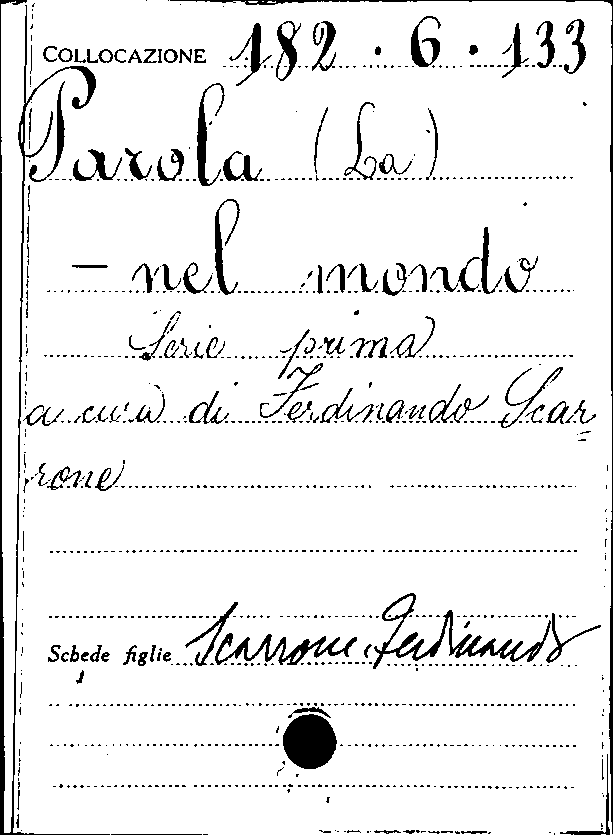 COLLOCAZIONE 182 . 6 . 133
Parola (La)
— nel mondo
Serie prima
a cura di Ferdinando Scar=
rone
Schede figlie Scarrone, Ferdinando
1